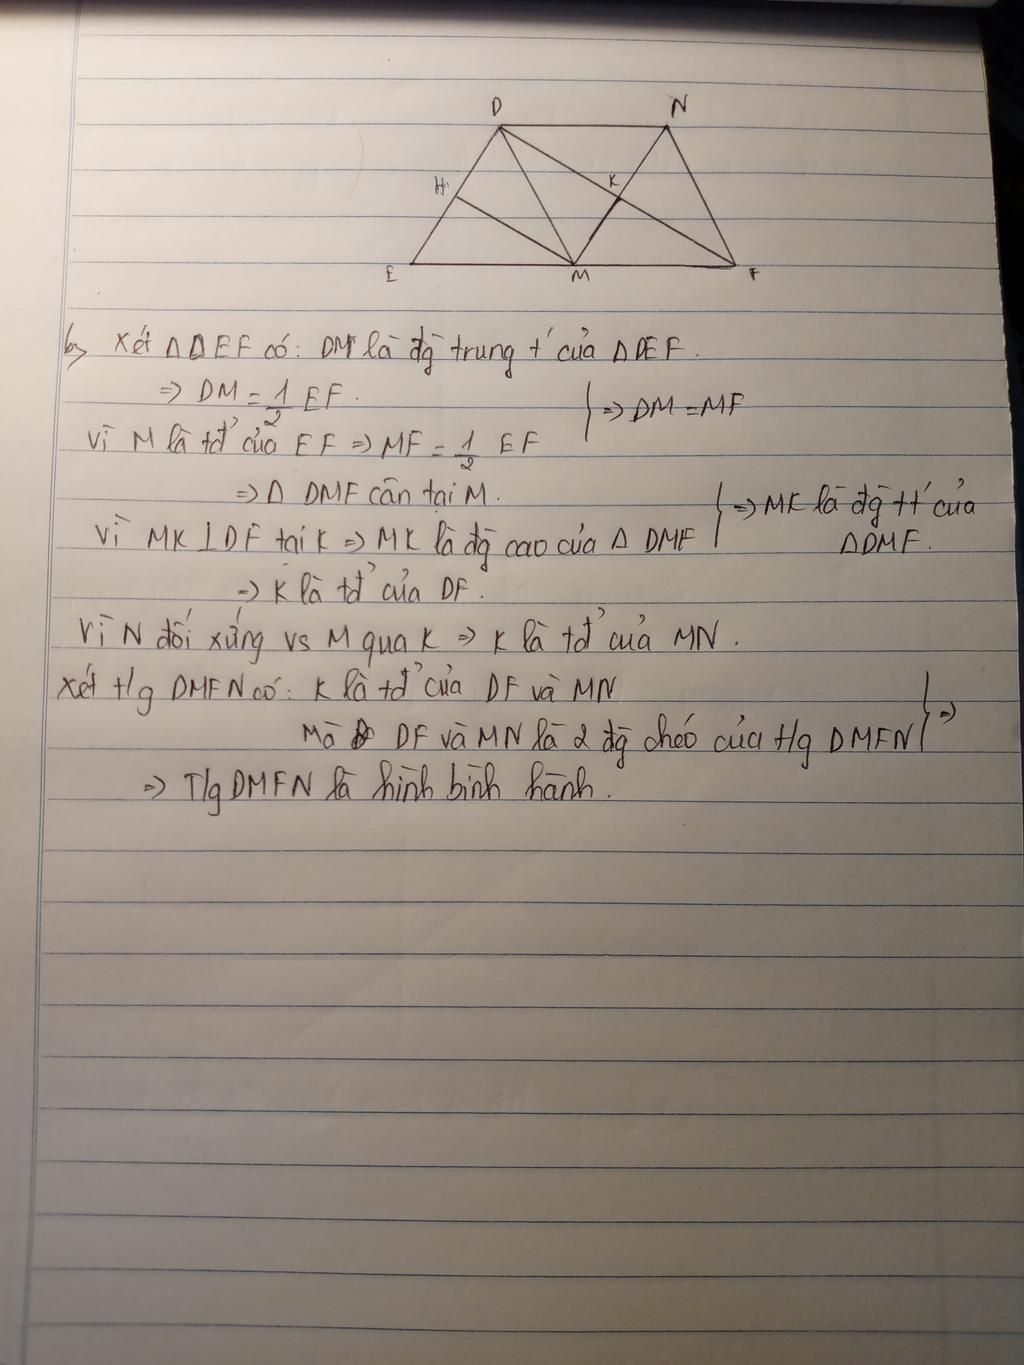 D N
H K
E M F
b) Xét ΔDEF có: DM là đg̀ trung t´ của ΔDEF.
=> DM = 1/2 EF.
} => DM = MF
Vì M là tđ' của EF => MF = 1/2 EF
=> Δ DMF cân tại M.
} => MK là đg̀ tt´ của ΔDMF.
Vì MK ⊥ DF tại K => MK là đg̀ cao của Δ DMF
=> K là tđ' của DF.
Vì N đối xứng vs M qua K => K là tđ' của MN.
Xét t/g DMFN có: K là tđ' của DF và MN
Mà DF và MN là 2 đg̀ chéo của t/g DMFN } =>
=> T/g DMFN là hình bình hành.